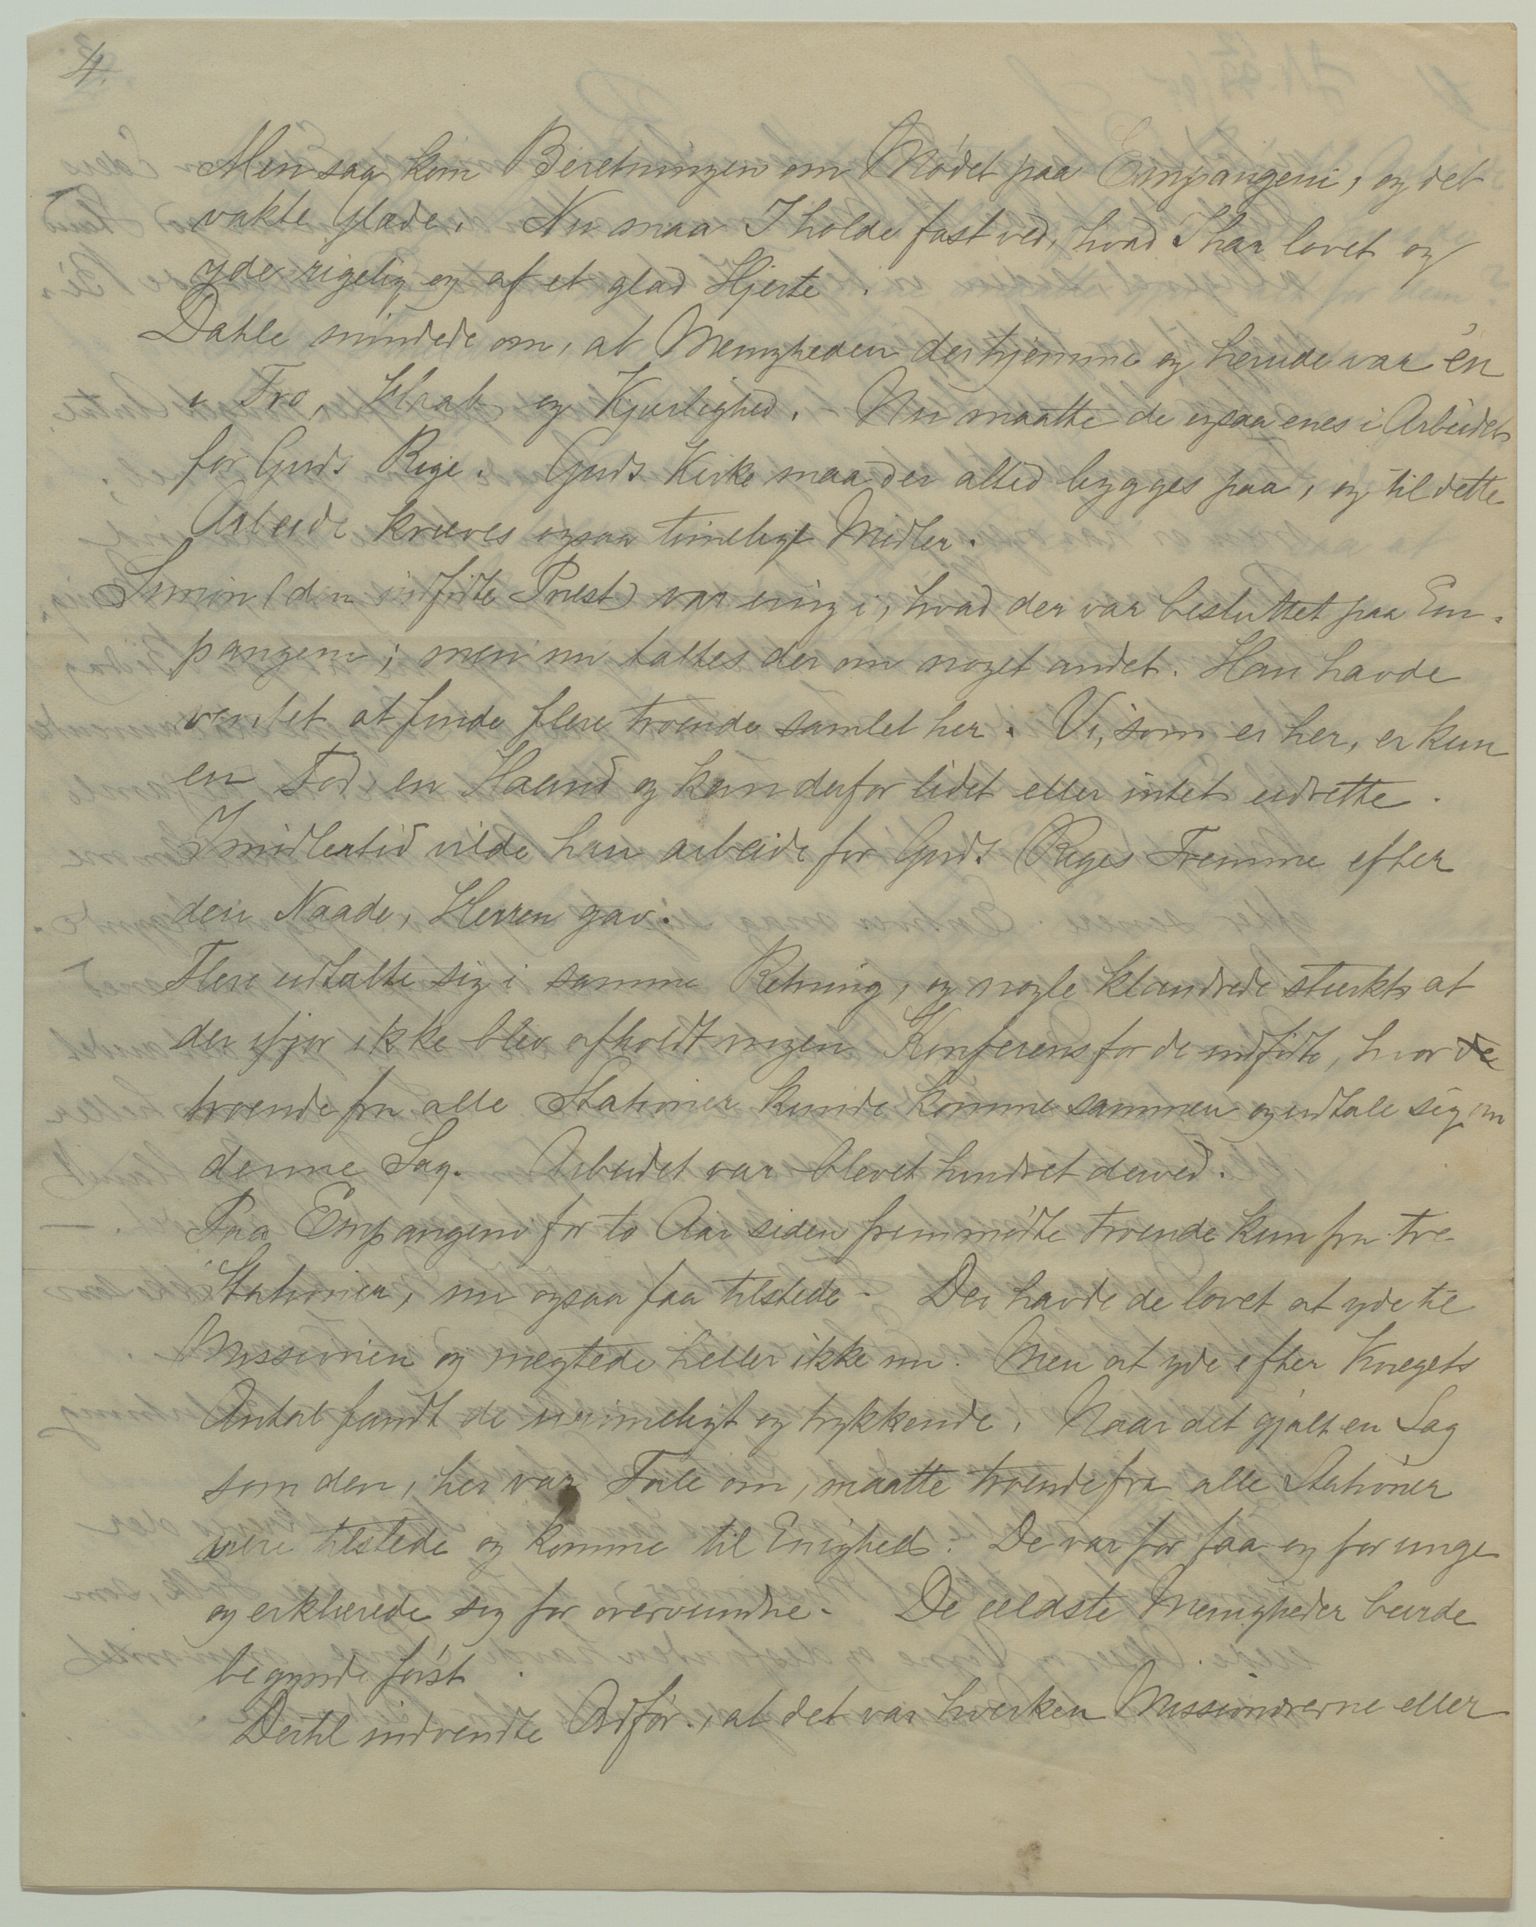 4.
Men saa kom Beretningen om Mødet paa Empangeni, og det
vakte Glæde. Nu maa I holde fast ved, hvad I har lovet og
yde rigelig og af et glad Hjerte.
Dahle mindede om, at Menigheden derhjemme og herude var én
i Tro, Haab og Kjærlighed. Nu maatte de ogsaa enes i Arbeidet
for Guds Rige. Guds Kirke maa der altid bygges paa, og til dette
Arbeide kræves ogsaa timelige Midler.
Simon (den indfødte Prest) var enig i, hvad der var besluttet paa Em-
pangeni; men nu taltes der om noget andet. Han havde
ventet at finde flere troende samlet her. Vi, som er her, er kun
en Fod, en Haand og kan derfor lidet eller intet udrette.
Imidlertid vilde han arbeide for Guds Riges Fremme efter
den Naade, Herren gav.
Flere udtalte sig i samme Retning, og nogle klandrede stærkt at
der ifjor ikke blev afholdt nogen Konferens for de indfødte, hvor de
troende fra alle Stationer kunde komme sammen og udtale sig om
denne Sag. Arbeidet var blevet hindret derved.
Paa Empangeni for to Aar siden fremmødte troende kun fra tre
Stationer, nu ogsaa faa tilstede. Der havde de lovet at yde til
Missionen og negtede heller ikke nu. Men at yde efter Kvægets
Antal fandt de urimeligt og trykkende. Naar det gjaldt en Sag
som den, her var Tale om, maatte troende fra alle Stationer
være tilstede og komme til Enighed. De var for faa og for unge
og erklærede sig for overvundne. De ældste Menigheder burde
begynde først.
Dertil indvendte Ordfør., at det var hverken Missionærerne eller